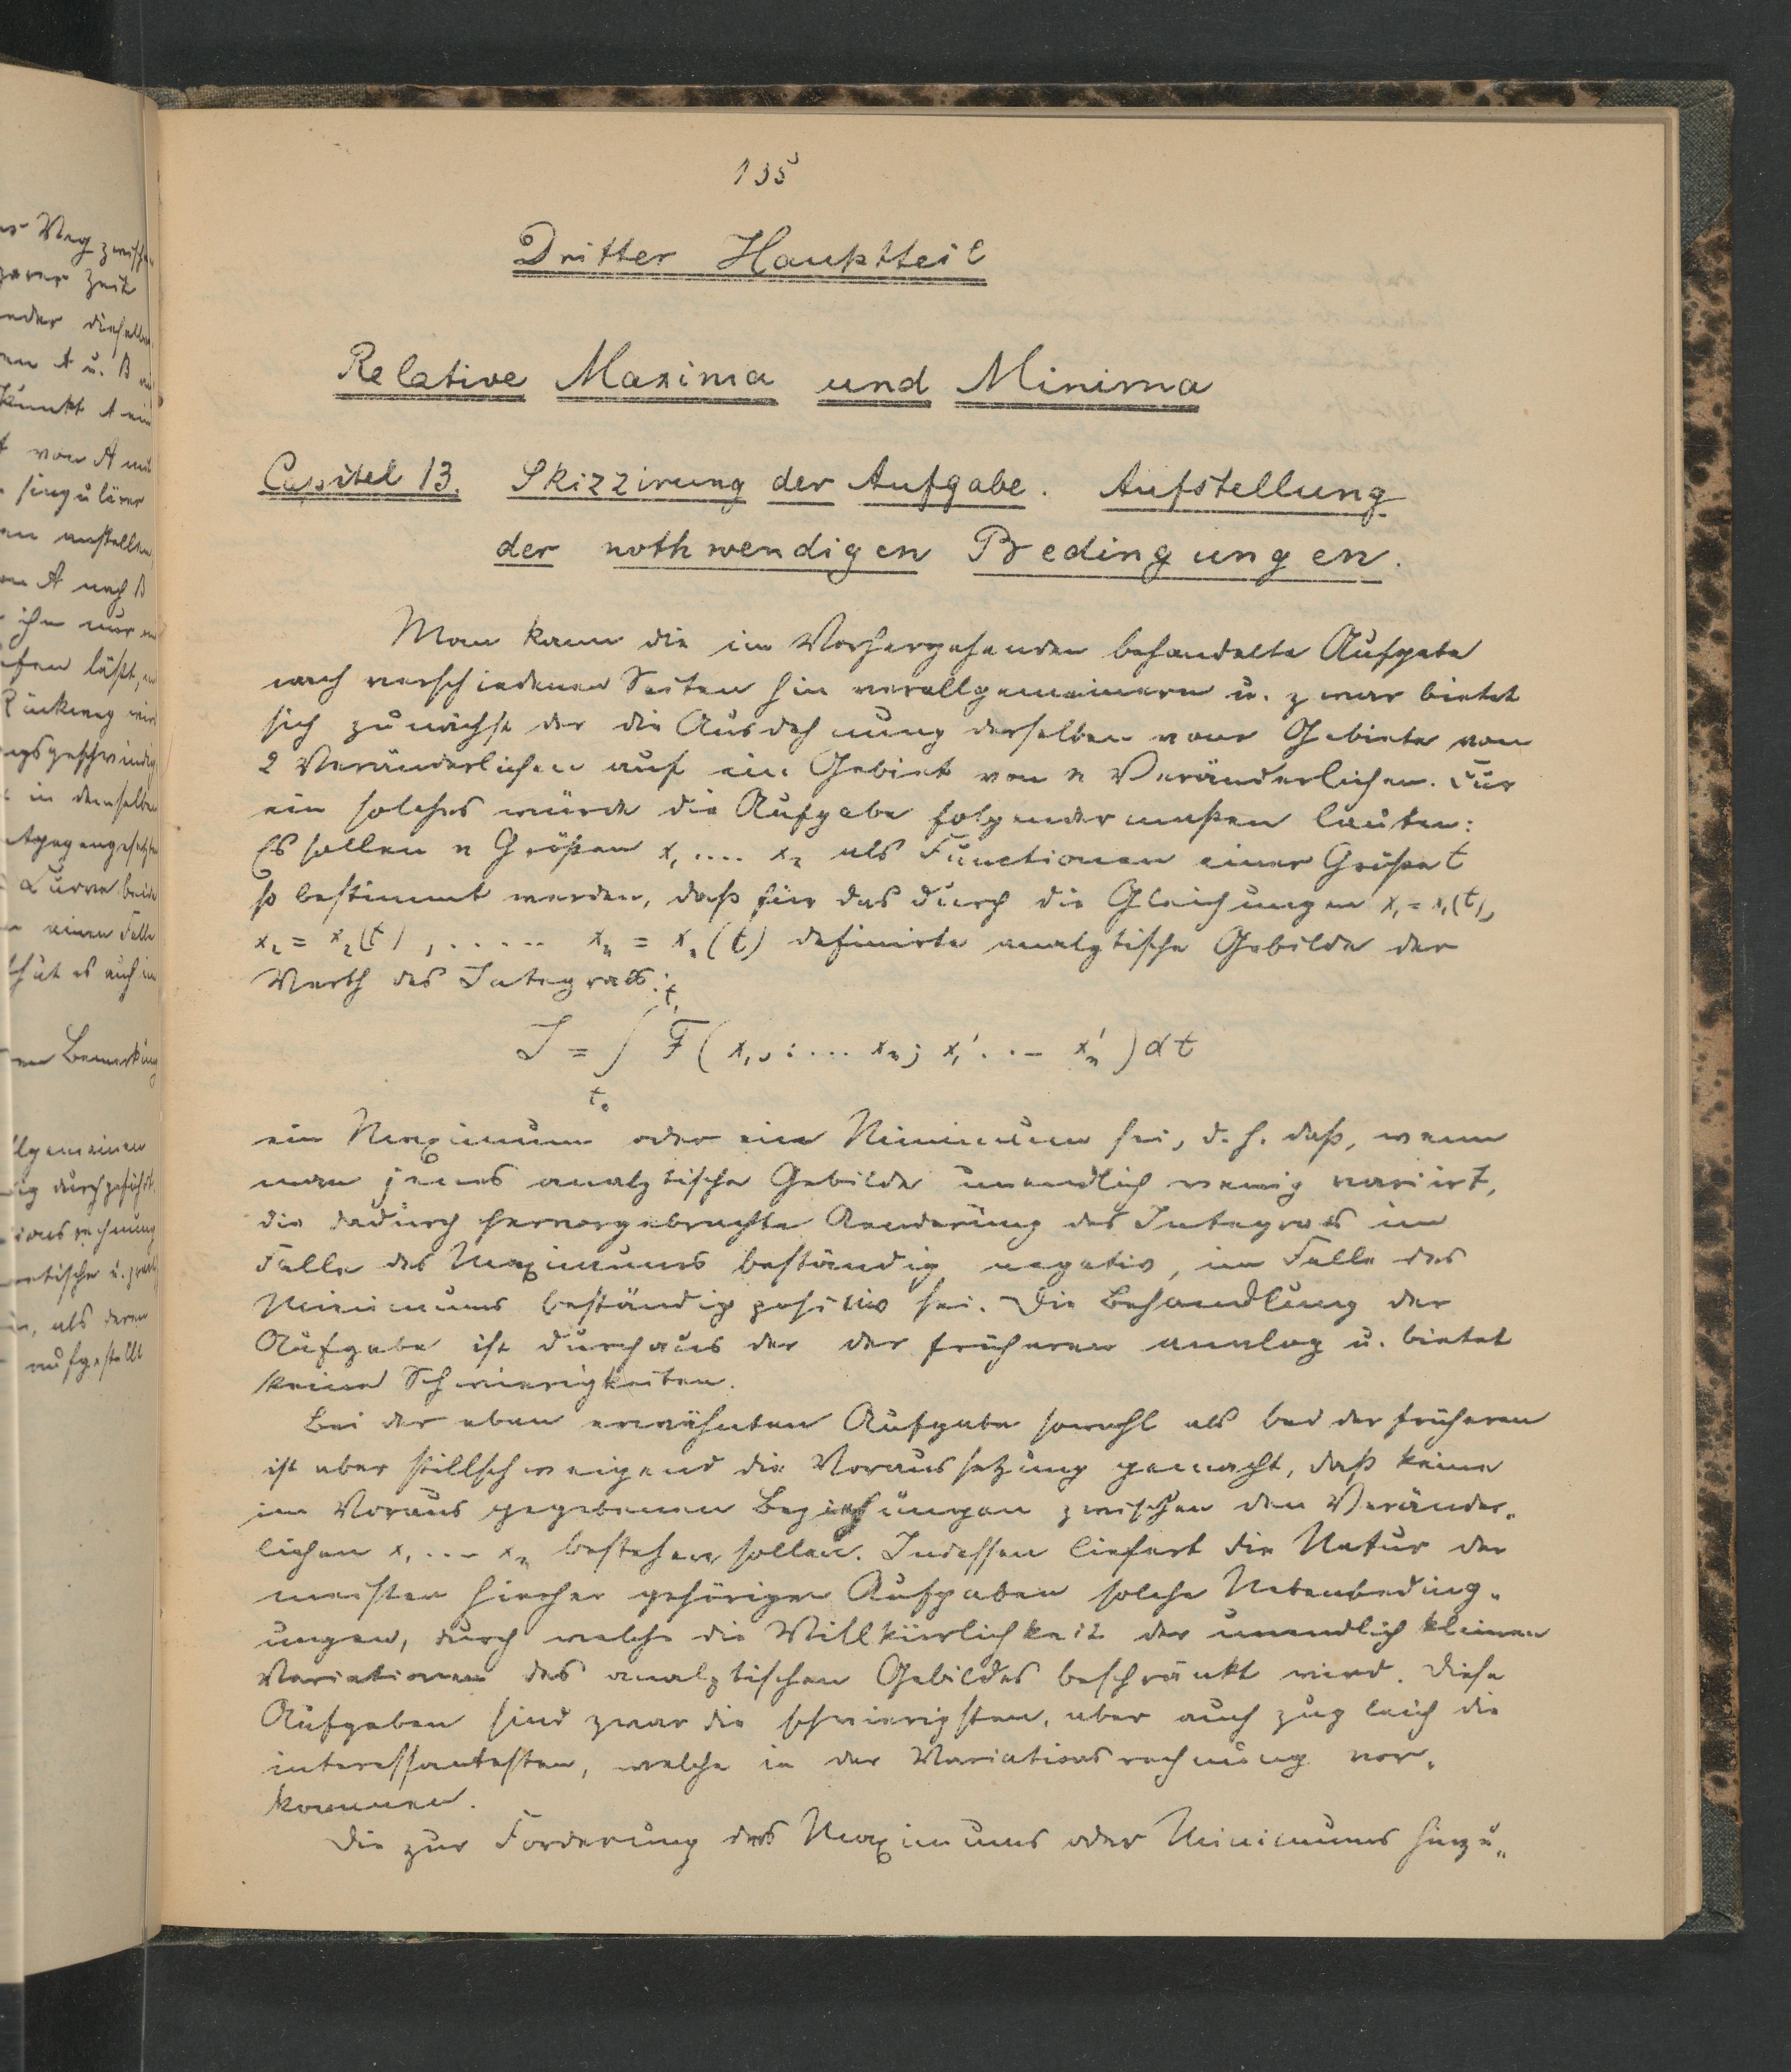 135
Dritter Hauptteil
Relative Maxima und Minima
Capitel 13. Skizzirung der Aufgabe. Aufstellung
der nothwendigen Bedingungen.
Man kann die im Vorhergehenden behandelte Aufgabe
nach verschiedenen Seiten hin verallgemeinern u. zwar bietet
sich zunächst der die Ausdehnung derselben vom Gebiete von
2 Veränderlichen auf ein Gebiet von n Veränderlichen. Für
ein solches würde die Aufgabe folgendermaßen lauten:
Es sollen n Größen x₁ .... xₙ als Functionen einer Größe t
so bestimmt werden, daß für das durch die Gleichungen x₁ = x₁(t),
x₂ = x₂(t), ...... xₙ = xₙ(t) definirte analytische Gebilde der
Werth des Integrals:
J = ∫ₜ₀ᵗ¹ F(x₁, .... xₙ; x₁' ... xₙ') dt
ein Maximum oder ein Minimum sei, d. h. daß, wenn
man jenes analytische Gebilde unendlich wenig variirt,
die dadurch hervorgebrachte Aenderung des Integrals im
Falle des Maximums beständig negativ, im Falle des
Minimums beständig positiv sei. Die Behandlung der
Aufgabe ist durchaus der der früheren analog u. bietet
keine Schwierigkeiten.
Bei der eben erwähnten Aufgabe sowohl als bei der früheren
ist aber stillschweigend die Voraussetzung gemacht, daß keine
im Voraus gegebenen Beziehungen zwischen den Veränder-
lichen x₁ ... xₙ bestehen sollen. Indessen liefert die Natur der
meisten hierher gehörigen Aufgaben solche Nebenbeding-
ungen, durch welche die Willkürlichkeit der unendlich kleinen
Variationen des analytischen Gebildes beschränkt wird. Diese
Aufgaben sind zwar die schwierigsten, aber auch zugleich die
interessantesten, welche in der Variationsrechnung vor-
kommen.
Die zur Forderung des Maximums oder Minimums hinzu-